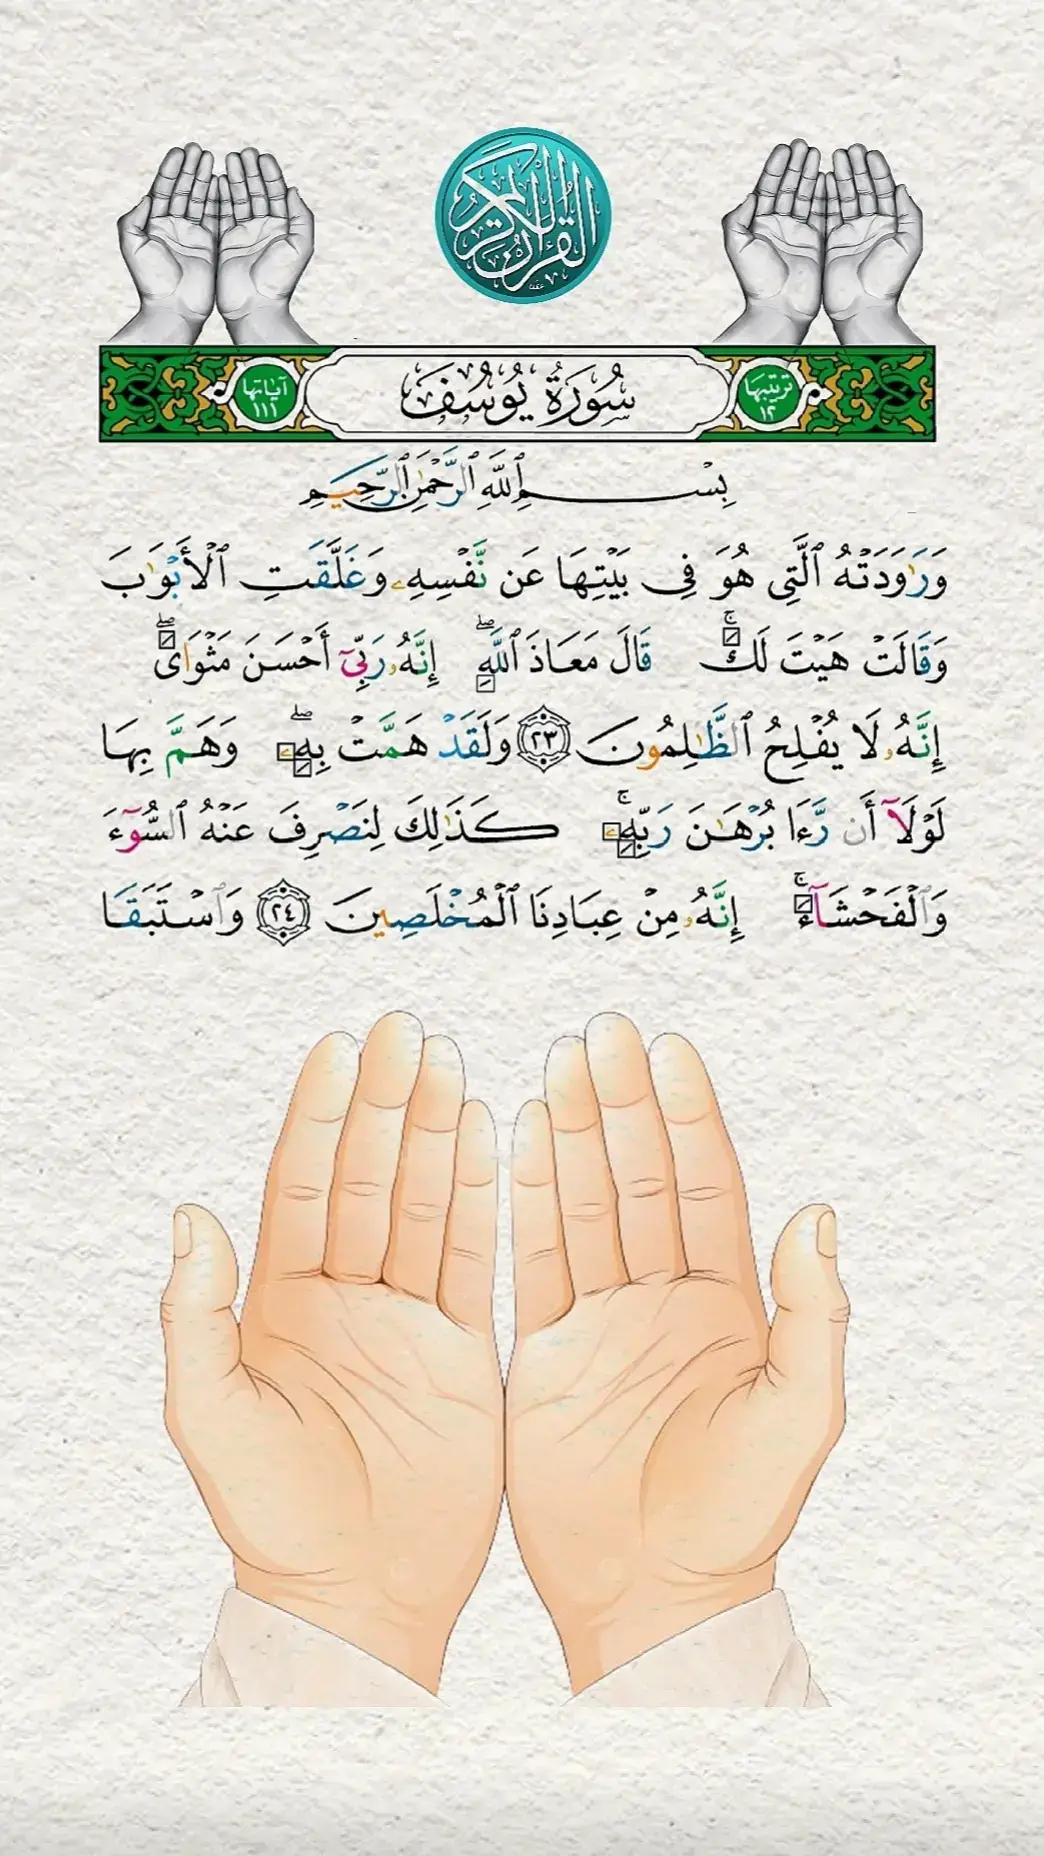 القرآن الكريم
ترتيبها ١٢
سُورَةُ يُوسُفَ
آياتها ١١١
بِسْمِ ٱللَّهِ ٱلرَّحْمَٰنِ ٱلرَّحِيمِ
وَرَٰوَدَتْهُ ٱلَّتِى هُوَ فِى بَيْتِهَا عَن نَّفْسِهِۦ وَغَلَّقَتِ ٱلْأَبْوَٰبَ
وَقَالَتْ هَيْتَ لَكَ ۚ قَالَ مَعَاذَ ٱللَّهِ ۖ إِنَّهُۥ رَبِّىٓ أَحْسَنَ مَثْوَاىَ ۖ
إِنَّهُۥ لَا يُفْلِحُ ٱلظَّٰلِمُونَ ٢٣ وَلَقَدْ هَمَّتْ بِهِۦ ۖ وَهَمَّ بِهَا
لَوْلَآ أَن رَّءَا بُرْهَٰنَ رَبِّهِۦ ۚ كَذَٰلِكَ لِنَصْرِفَ عَنْهُ ٱلسُّوٓءَ
وَٱلْفَحْشَآءَ ۚ إِنَّهُۥ مِنْ عِبَادِنَا ٱلْمُخْلَصِينَ ٢٤ وَٱسْتَبَقَا